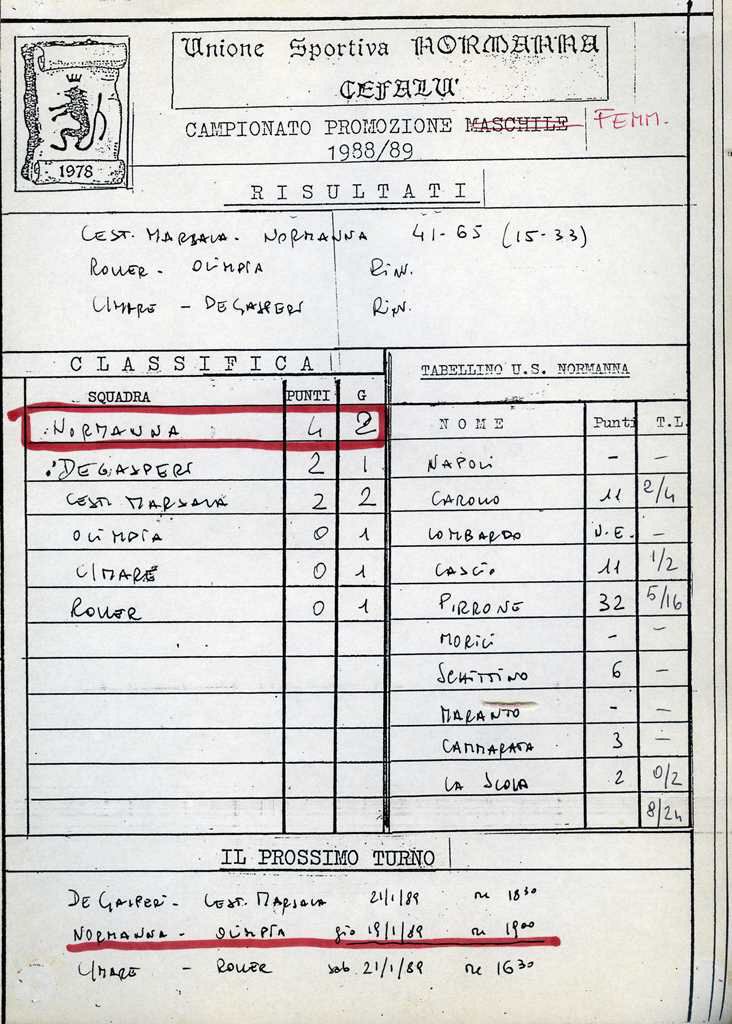 Unione Sportiva NORMANNA
CEFALU'
CAMPIONATO PROMOZIONE MASCHILE FEMM.
1988/89
1978
RISULTATI
CEST. MARSALA - NORMANNA 41-65 (15-33)
ROLLER - OLIMPIA RINV.
CIMARE - DEGASPERI RINV.
CLASSIFICA
SQUADRA PUNTI G
NORMANNA 4 2
DEGASPERI 2 1
CEST. MARSALA 2 2
OLIMPIA 0 1
CIMARE 0 1
ROLLER 0 1
TABELLINO U.S. NORMANNA
NOME Punti T.L.
NAPOLI - -
CAROLLO 11 2/4
LOMBARDO N.E. -
CASCIO 11 1/2
PIRRONE 32 5/16
MORICI - -
SCHITTINO 6 -
MARANTO - -
CAMMARATA 3 -
LA SCOLA 2 0/2
8/24
IL PROSSIMO TURNO
DEGASPERI - CEST. MARSALA 21/1/89 ore 1830
NORMANNA - OLIMPIA gio 19/1/89 ore 1900
CIMARE - ROLLER sab. 21/1/89 ore 1630